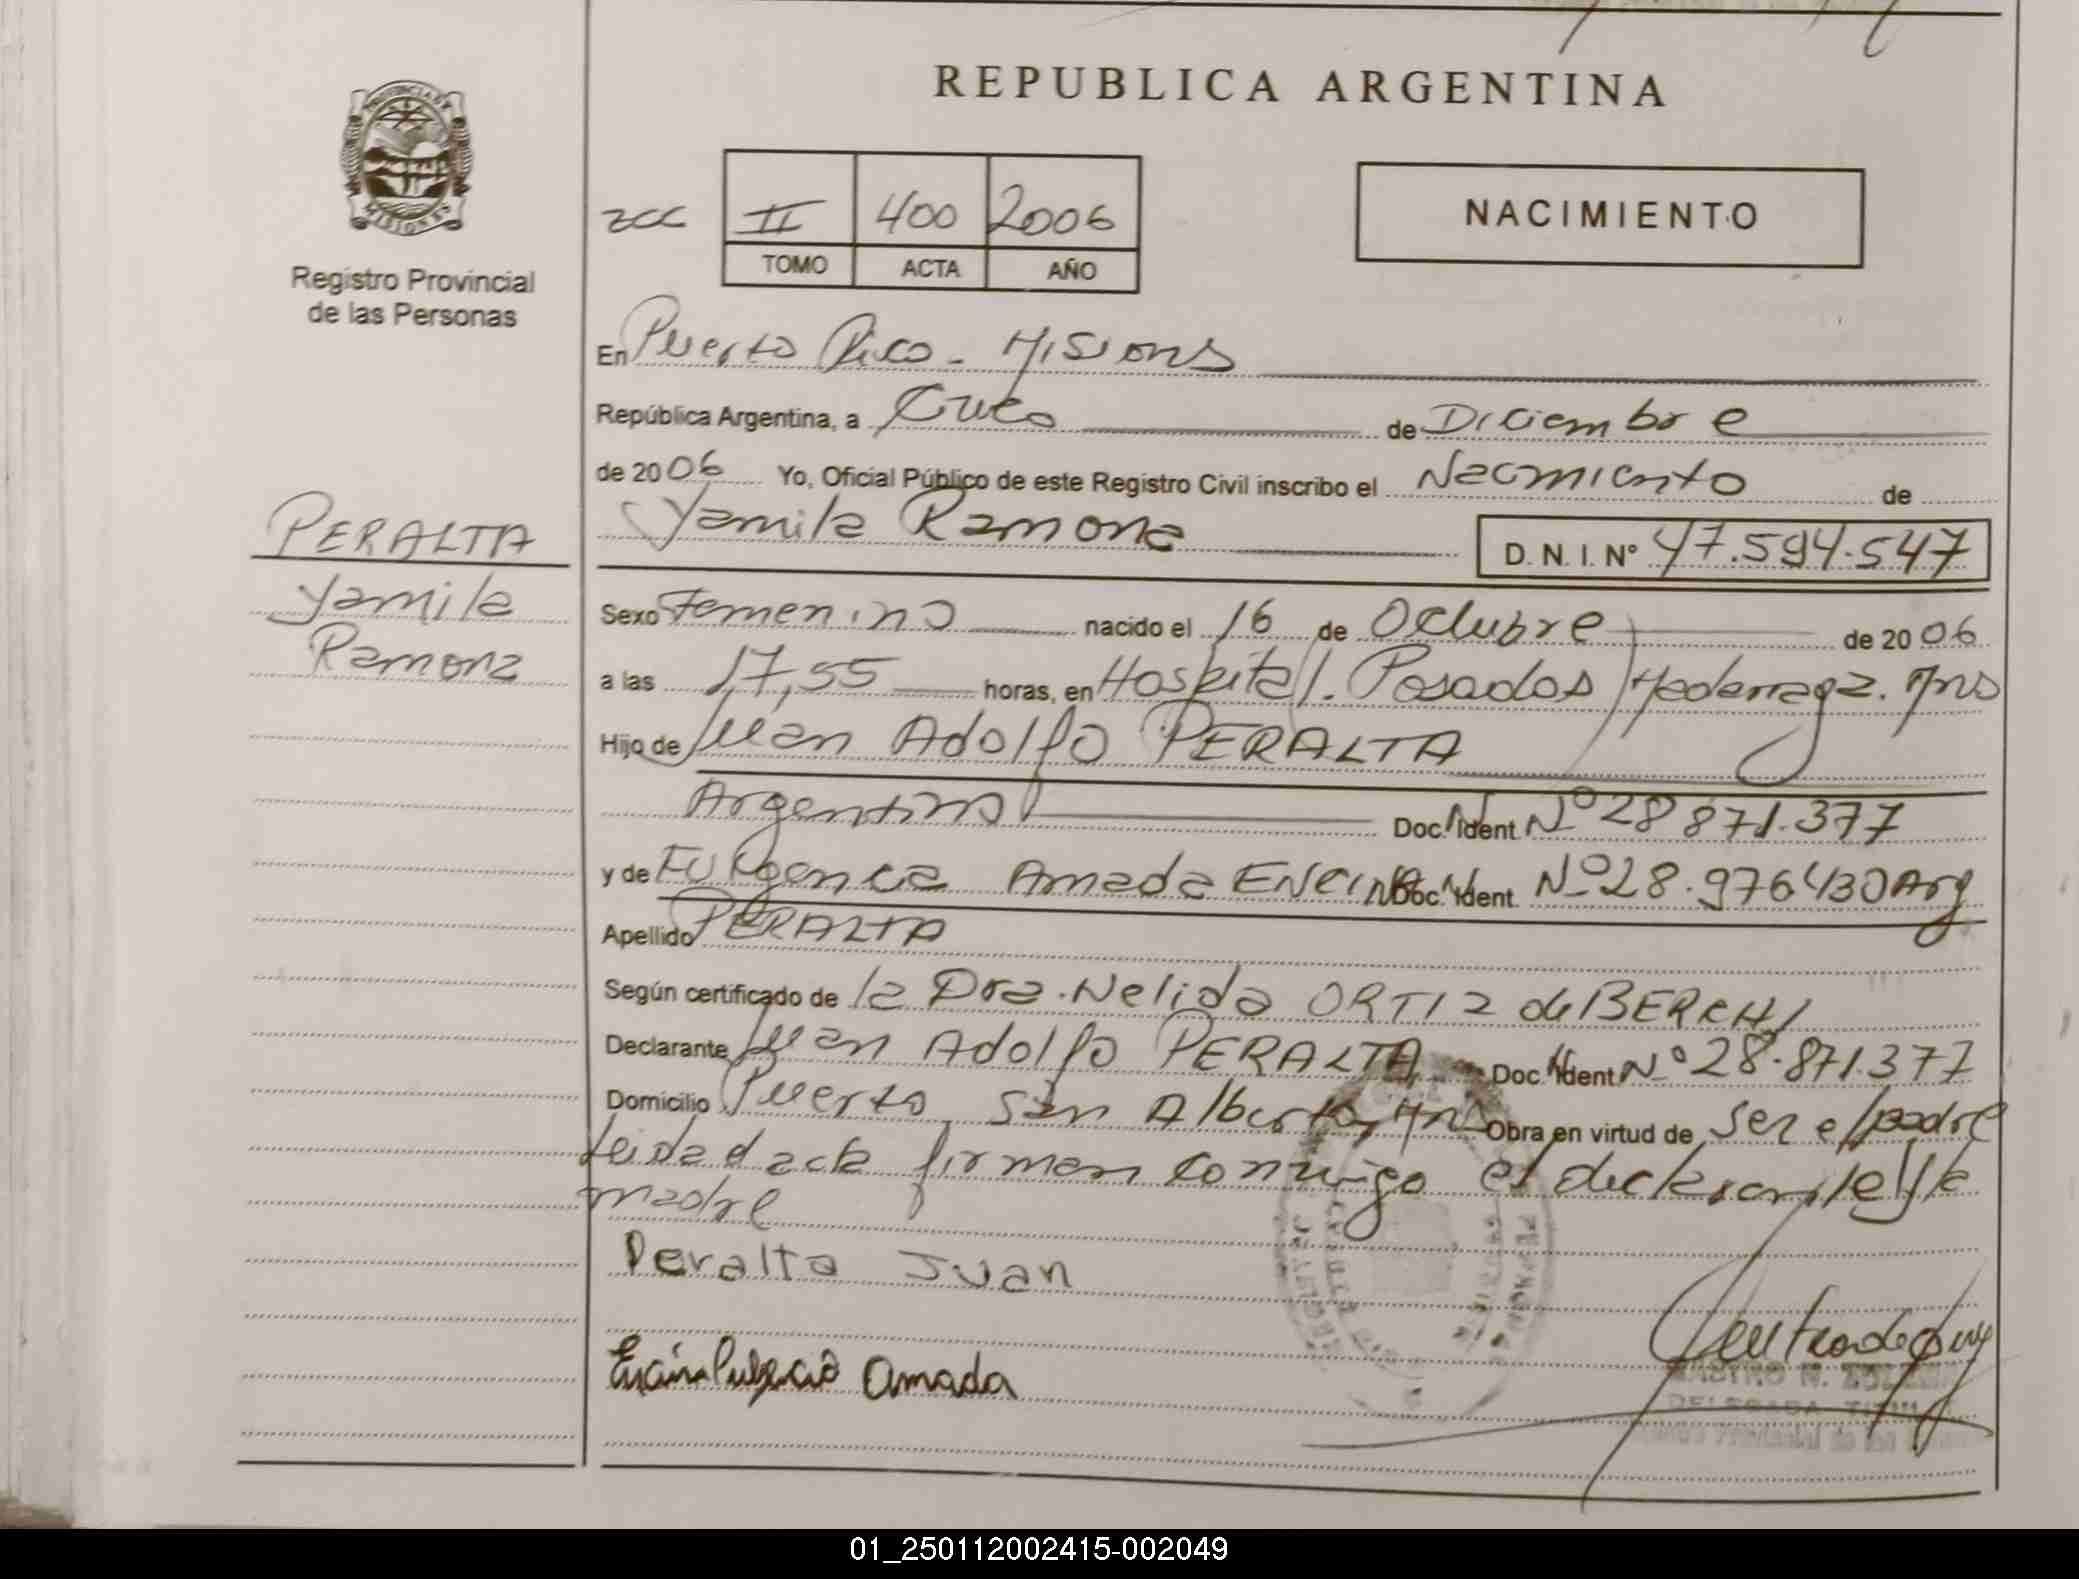 REPUBLICA ARGENTINA
PROVINCIA DE MISIONES
Registro Provincial
de las Personas
II 400 2006
TOMO ACTA AÑO
NACIMIENTO
En Puerto Rico - Misions
República Argentina, a Cinco de Diciembre
de 2006 Yo, Oficial Público de este Registro Civil inscribo el Nacimiento de
Yamila Ramona D. N. I. N° 47.594.547
PERALTA
Yamila
Ramona
Sexo Femenino nacido el 16 de Octubre de 2006
a las 17,55 horas, en Hospital. Posadas
Hijo de Juan Adolfo PERALTA
Argentino Doc. Ident. N° 28 871.377
y de Fulgencia Amada ENCINA Doc. Ident. N° 28.976430 Arg
Apellido PERALTA
Según certificado de la Dra. Nelida ORTIZ de BERCHI
Declarante Juan Adolfo PERALTA Doc. Ident N° 28.871.377
Domicilio Puerto San Alberto, Mns Obra en virtud de ser el padre
Leida el acta firman conmigo el declarante y la
madre
Peralta Juan
Amada
01_250112002415-002049